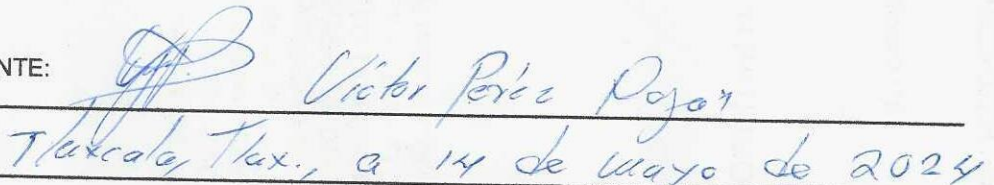 NTE: Victor Pérez Rojas
Tlaxcala, Tlax., a 14 de mayo de 2024